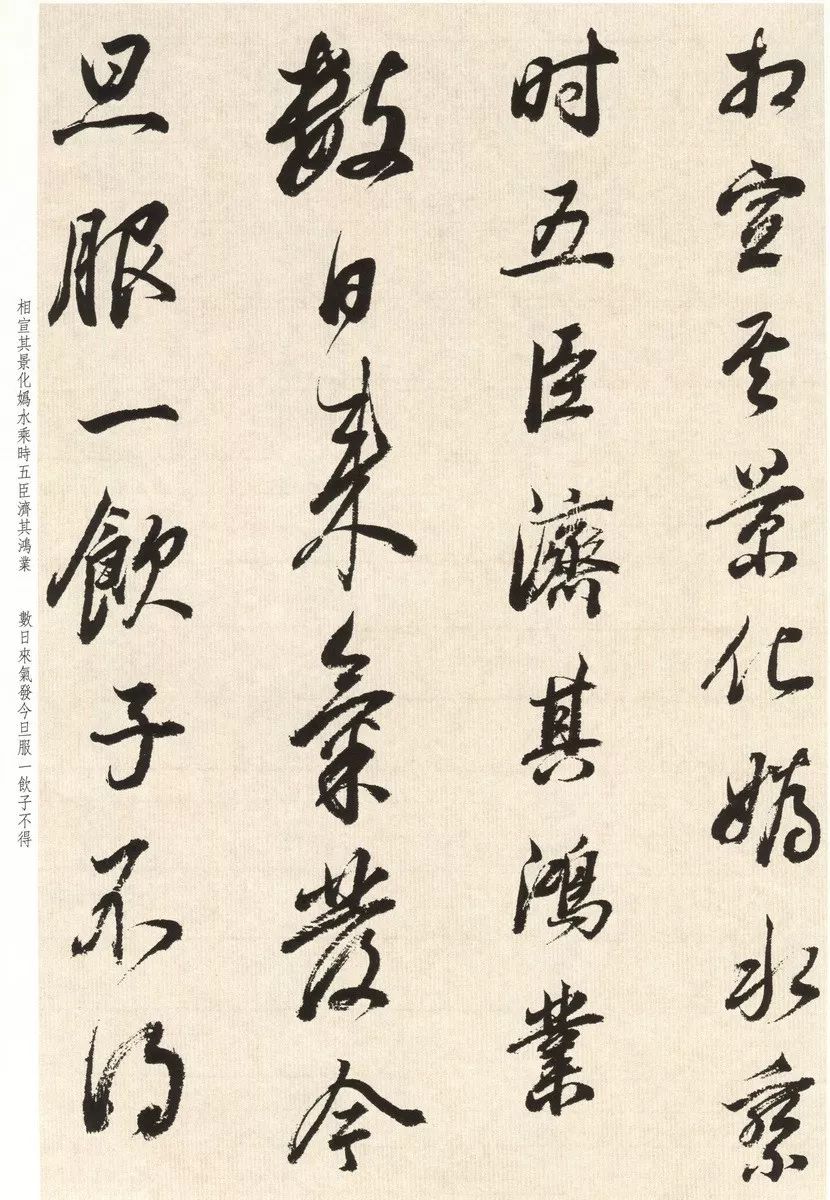 相宣其景化媯水乘
时五臣濟其鴻業
數日來氣發今
旦服一飲子不得
相宣其景化媯水乘時五臣濟其鴻業　數日來氣發今旦服一飲子不得